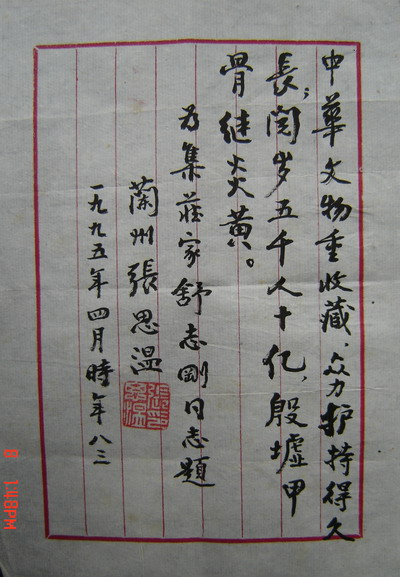 中華文物重收藏，众力护持得久
長；閱岁五千人十亿，殷墟甲
骨继炎黄。
为集莊家舒志剛同志題
蘭州張思温
一九九五年四月時年八三
張思温印
8 1:48PM